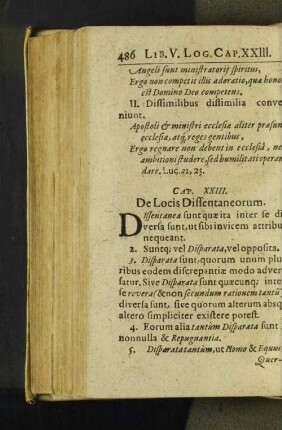 486 LIB. V. LOG. CAP. XXIII.
Angeli sunt ministratorij spiritus,
Ergo non competit illis adoratio, quæ hono
est Domino Deo competens,
II. Dissimilibus dissimilia conve
niunt.
Apostoli & ministri ecclesiæ aliter præsun
ecclesiæ, atq; reges gentibus,
Ergo regnare non debent in ecclesiâ, ne
ambitioni studere, sed humilitati operam
dare. Luc. 21, 25.
CAP. XXIII.
De Locis Dissentaneorum.
Dissentanea sunt quæ ita inter se di
versa sunt, ut sibi invicem attribu
nequeant.
2. Suntq; vel Disparata, vel opposita.
3. Disparata sunt, quorum unum plu
ribus eodem discrepantiæ modo adver
satur. Sive Disparata sunt quæcunq; inter
se reverâ & non secundum rationem tantũ
diversa sunt, sive quorum alterum absq
altero simpliciter existere potest.
4. Eorum alia tantùm Disparata sunt
nonnulla & Repugnantia.
5. Disparata tantùm, ut Homo & Equus
Quer-